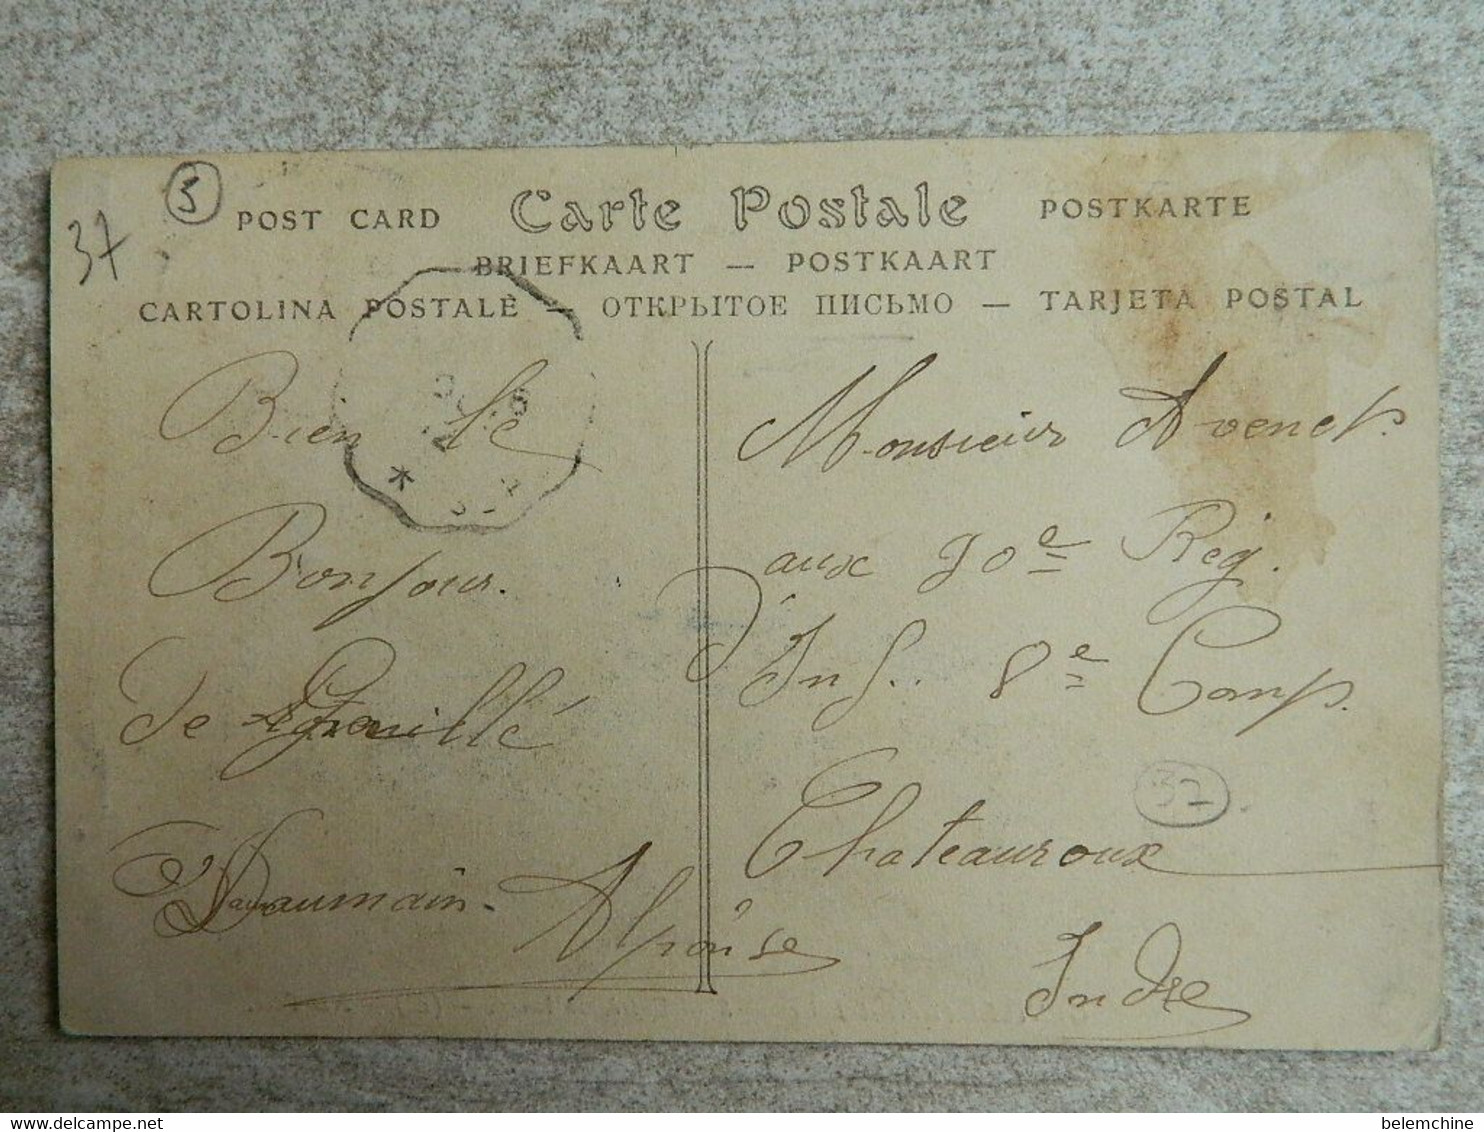 37
5
POST CARD Carte Postale POSTKARTE
BRIEFKAART — POSTKAART
CARTOLINA POSTALE — ОТКРЫТОЕ ПИСЬМО — TARJETA POSTAL
Bien le
Bonjour.
De
Daumain Alponse
Monsieur Avenet
aux 90e Reg.
d'Inf. 8e Comp.
Chateauroux
37
Indre
delcampe.net
belemchine